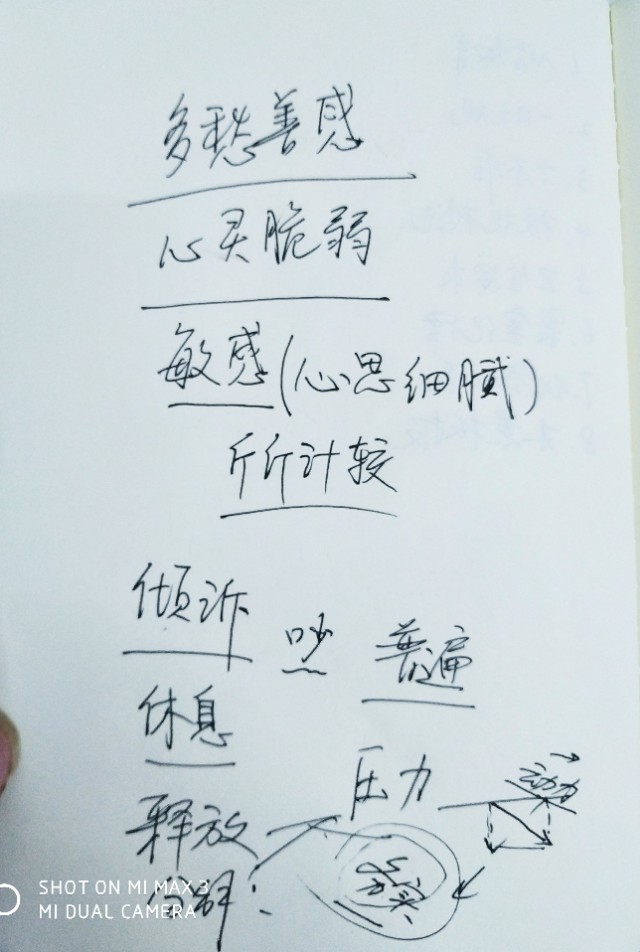 多愁善感
心灵脆弱
敏感(心思细腻)
斤斤计较
倾诉 吵 普遍
休息
压力 动力
释放
务实
分解:
SHOT ON MI MAX 3
MI DUAL CAMERA